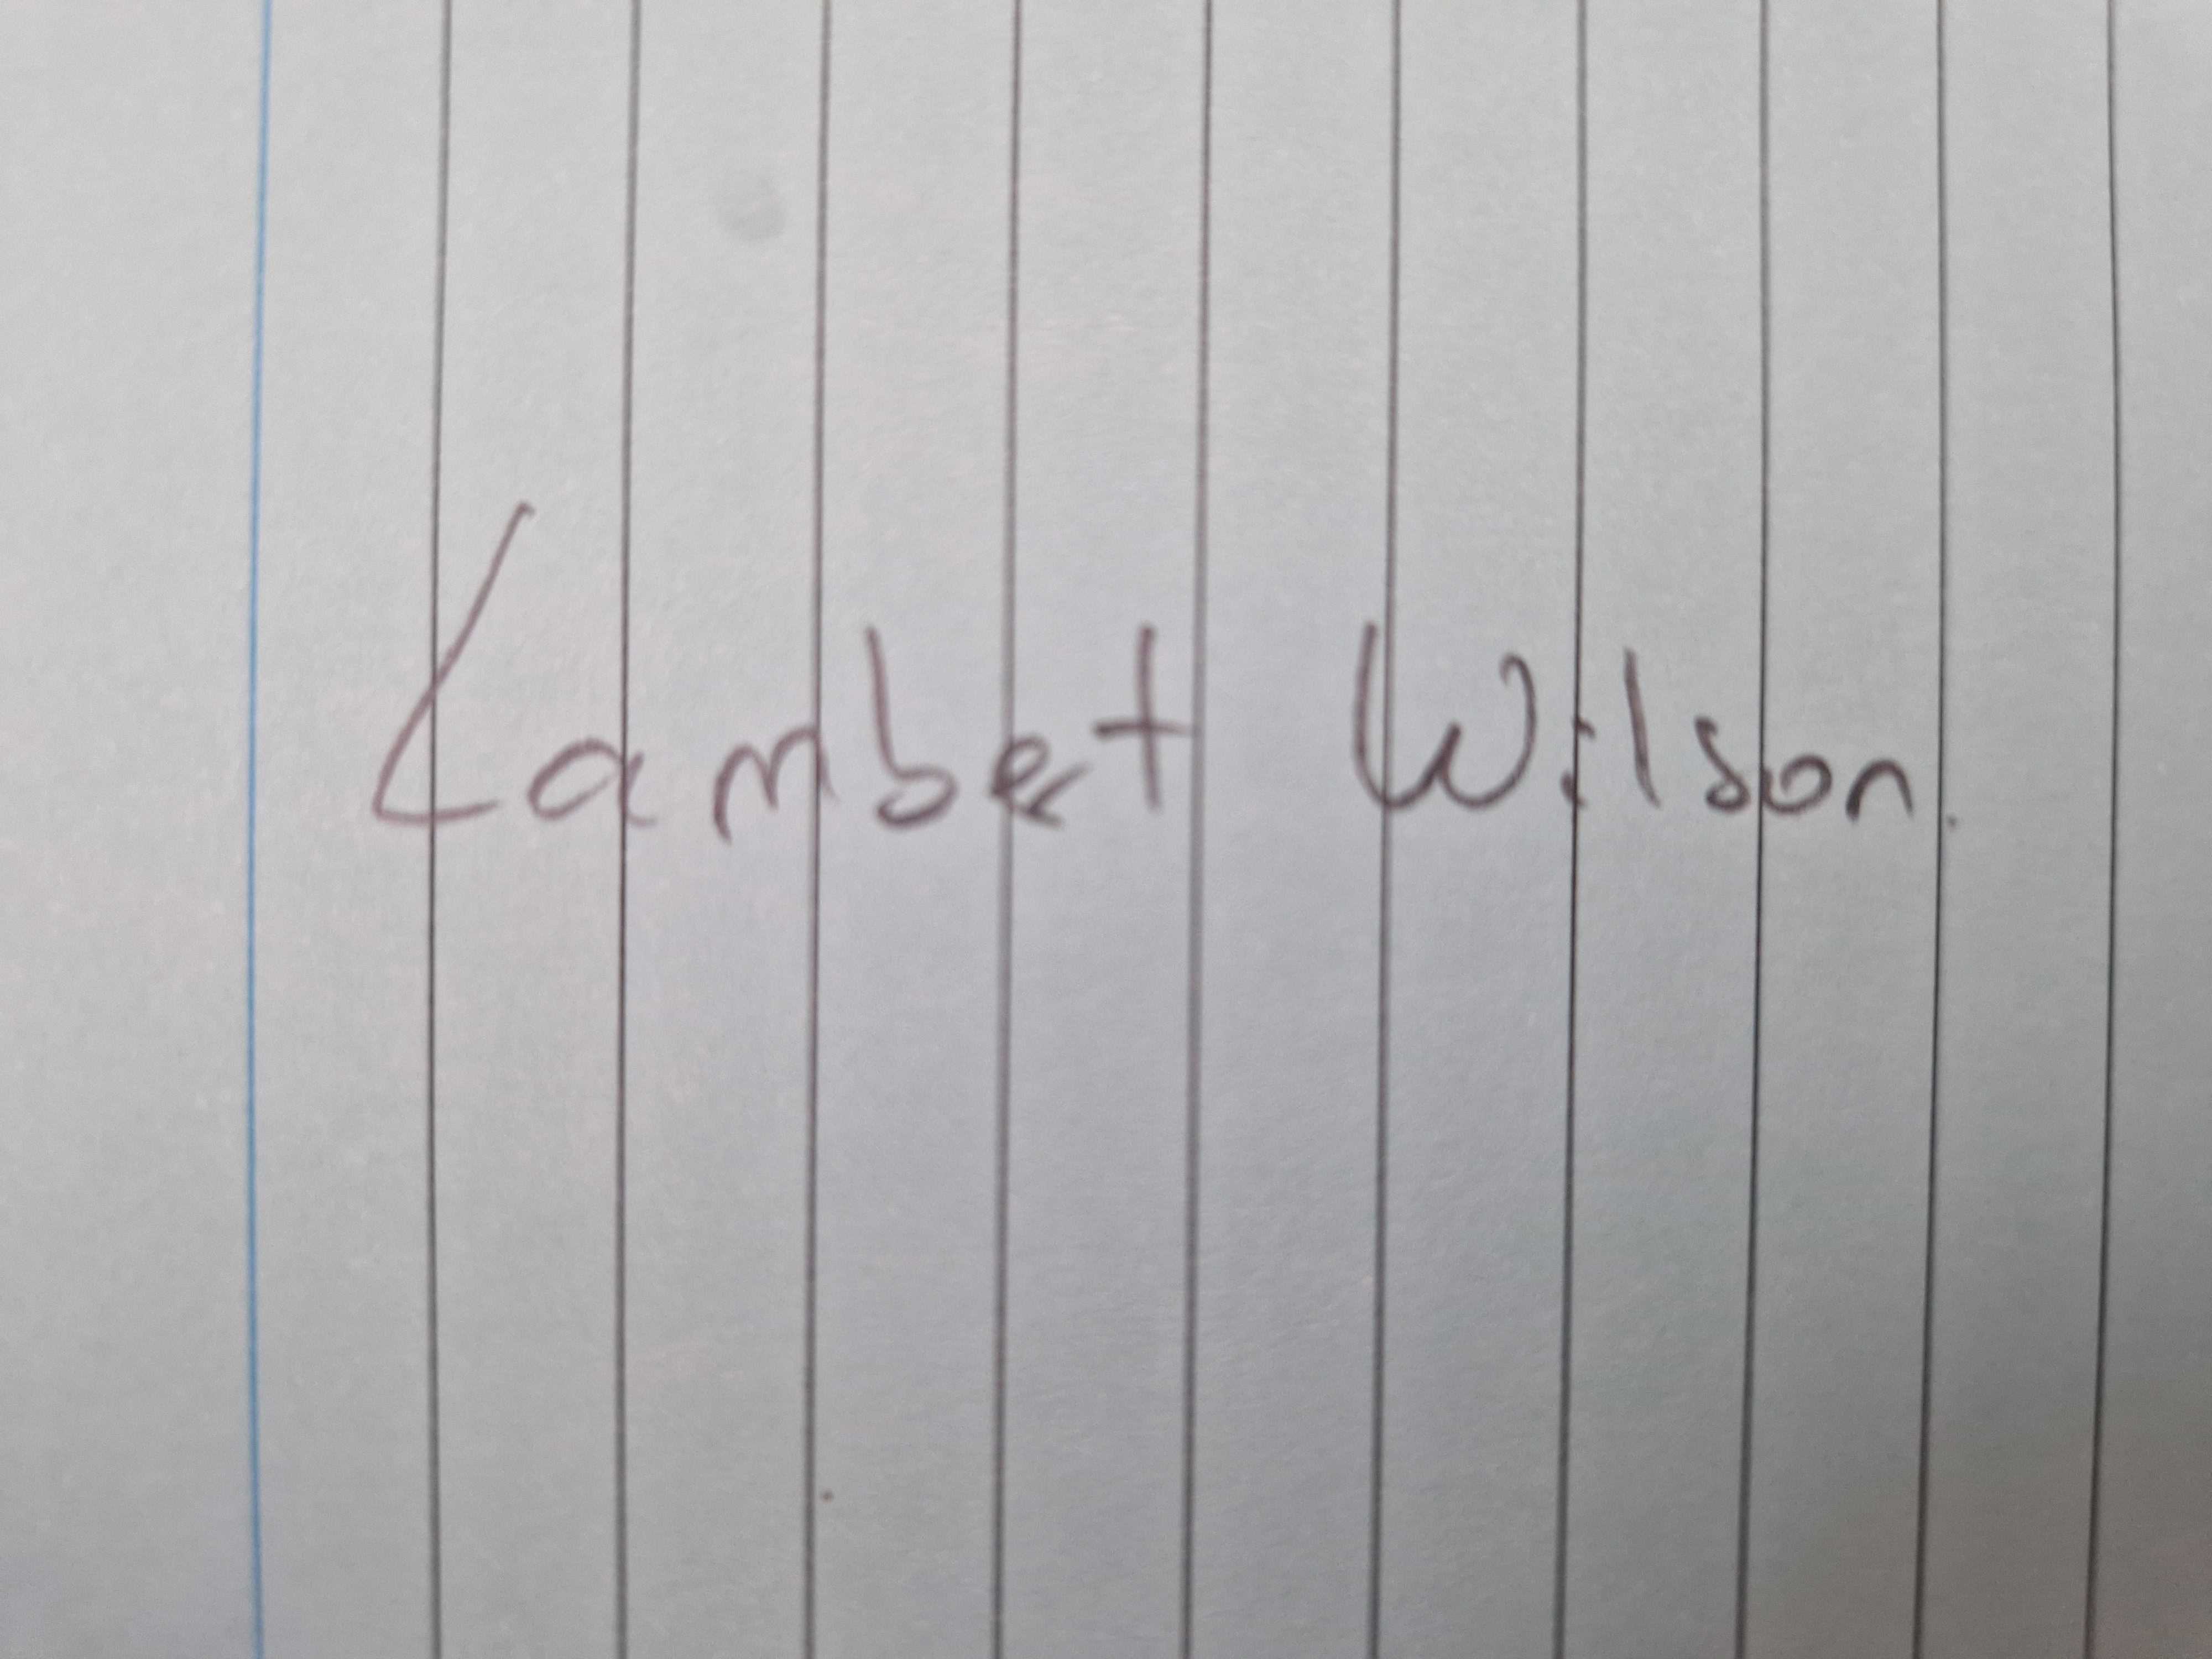 Lambet Wilson.